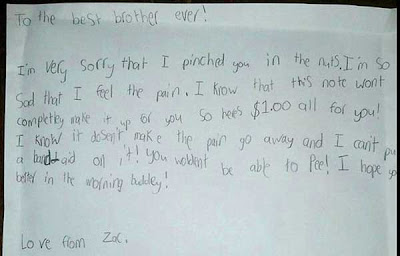 To the best brother ever!
I'm very sorry that I pinched you in the nuts. I'm so
Sad that I feel the pain. I know that this note wont
completely make it up for you so here's $1.00 all for you!
I know it dosen't make the pain go away and I can't pu
a band-aid on it! you woldent be able to Pee! I hope yo
better in the morning buddey!
Love from Zac.